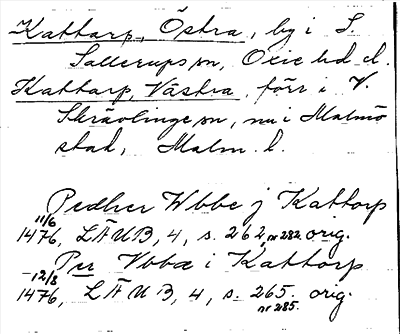 Kattarp, Östra, by i S.
Sallerups sn, Oxie hd el.
Kattarp, Västra, förr i V.
Skrävlinge sn, nu i Malmö
stad, Malm. l.
Pedher Wbbe j Kattorp
11/6
1476, LÄUB, 4, s. 262, nr 282. orig.
Per Vbbæ i Kattorp
-12/8
1476, LÄUB, 4, s. 265. orig.
nr 285.